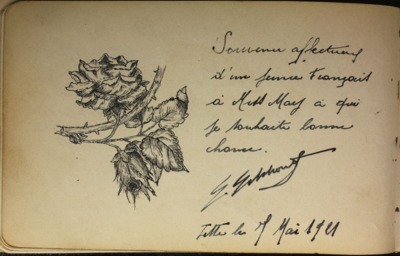 Souvenir affectueux
d'un jeune Français
à Miss May à qui
je souhaite bonne
chance.
le 7 Mai 1921